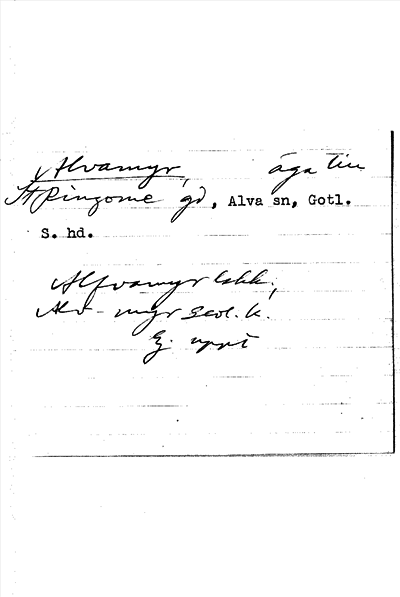 Alvamyr, äga till
St Ringome gd, Alva sn, Gotl.
S. hd.
Alfvamyr lshk;
Alv-myr geol. k.
Ej uppt